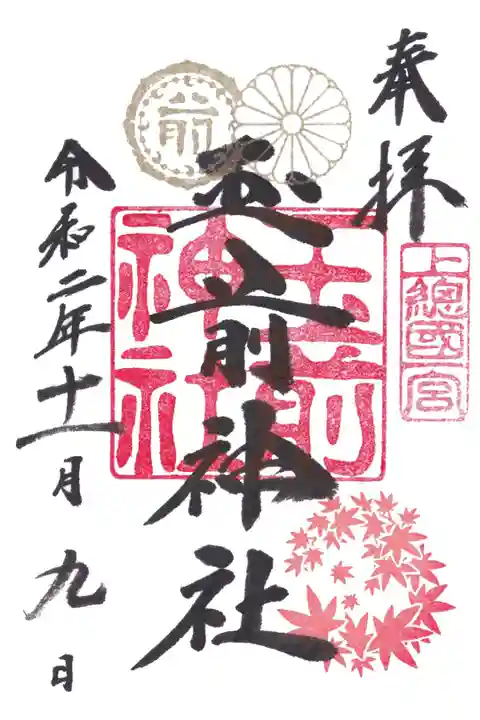 奉拝
上總國一宮
玉前神社
玉前神社
前
令和二年十一月九日